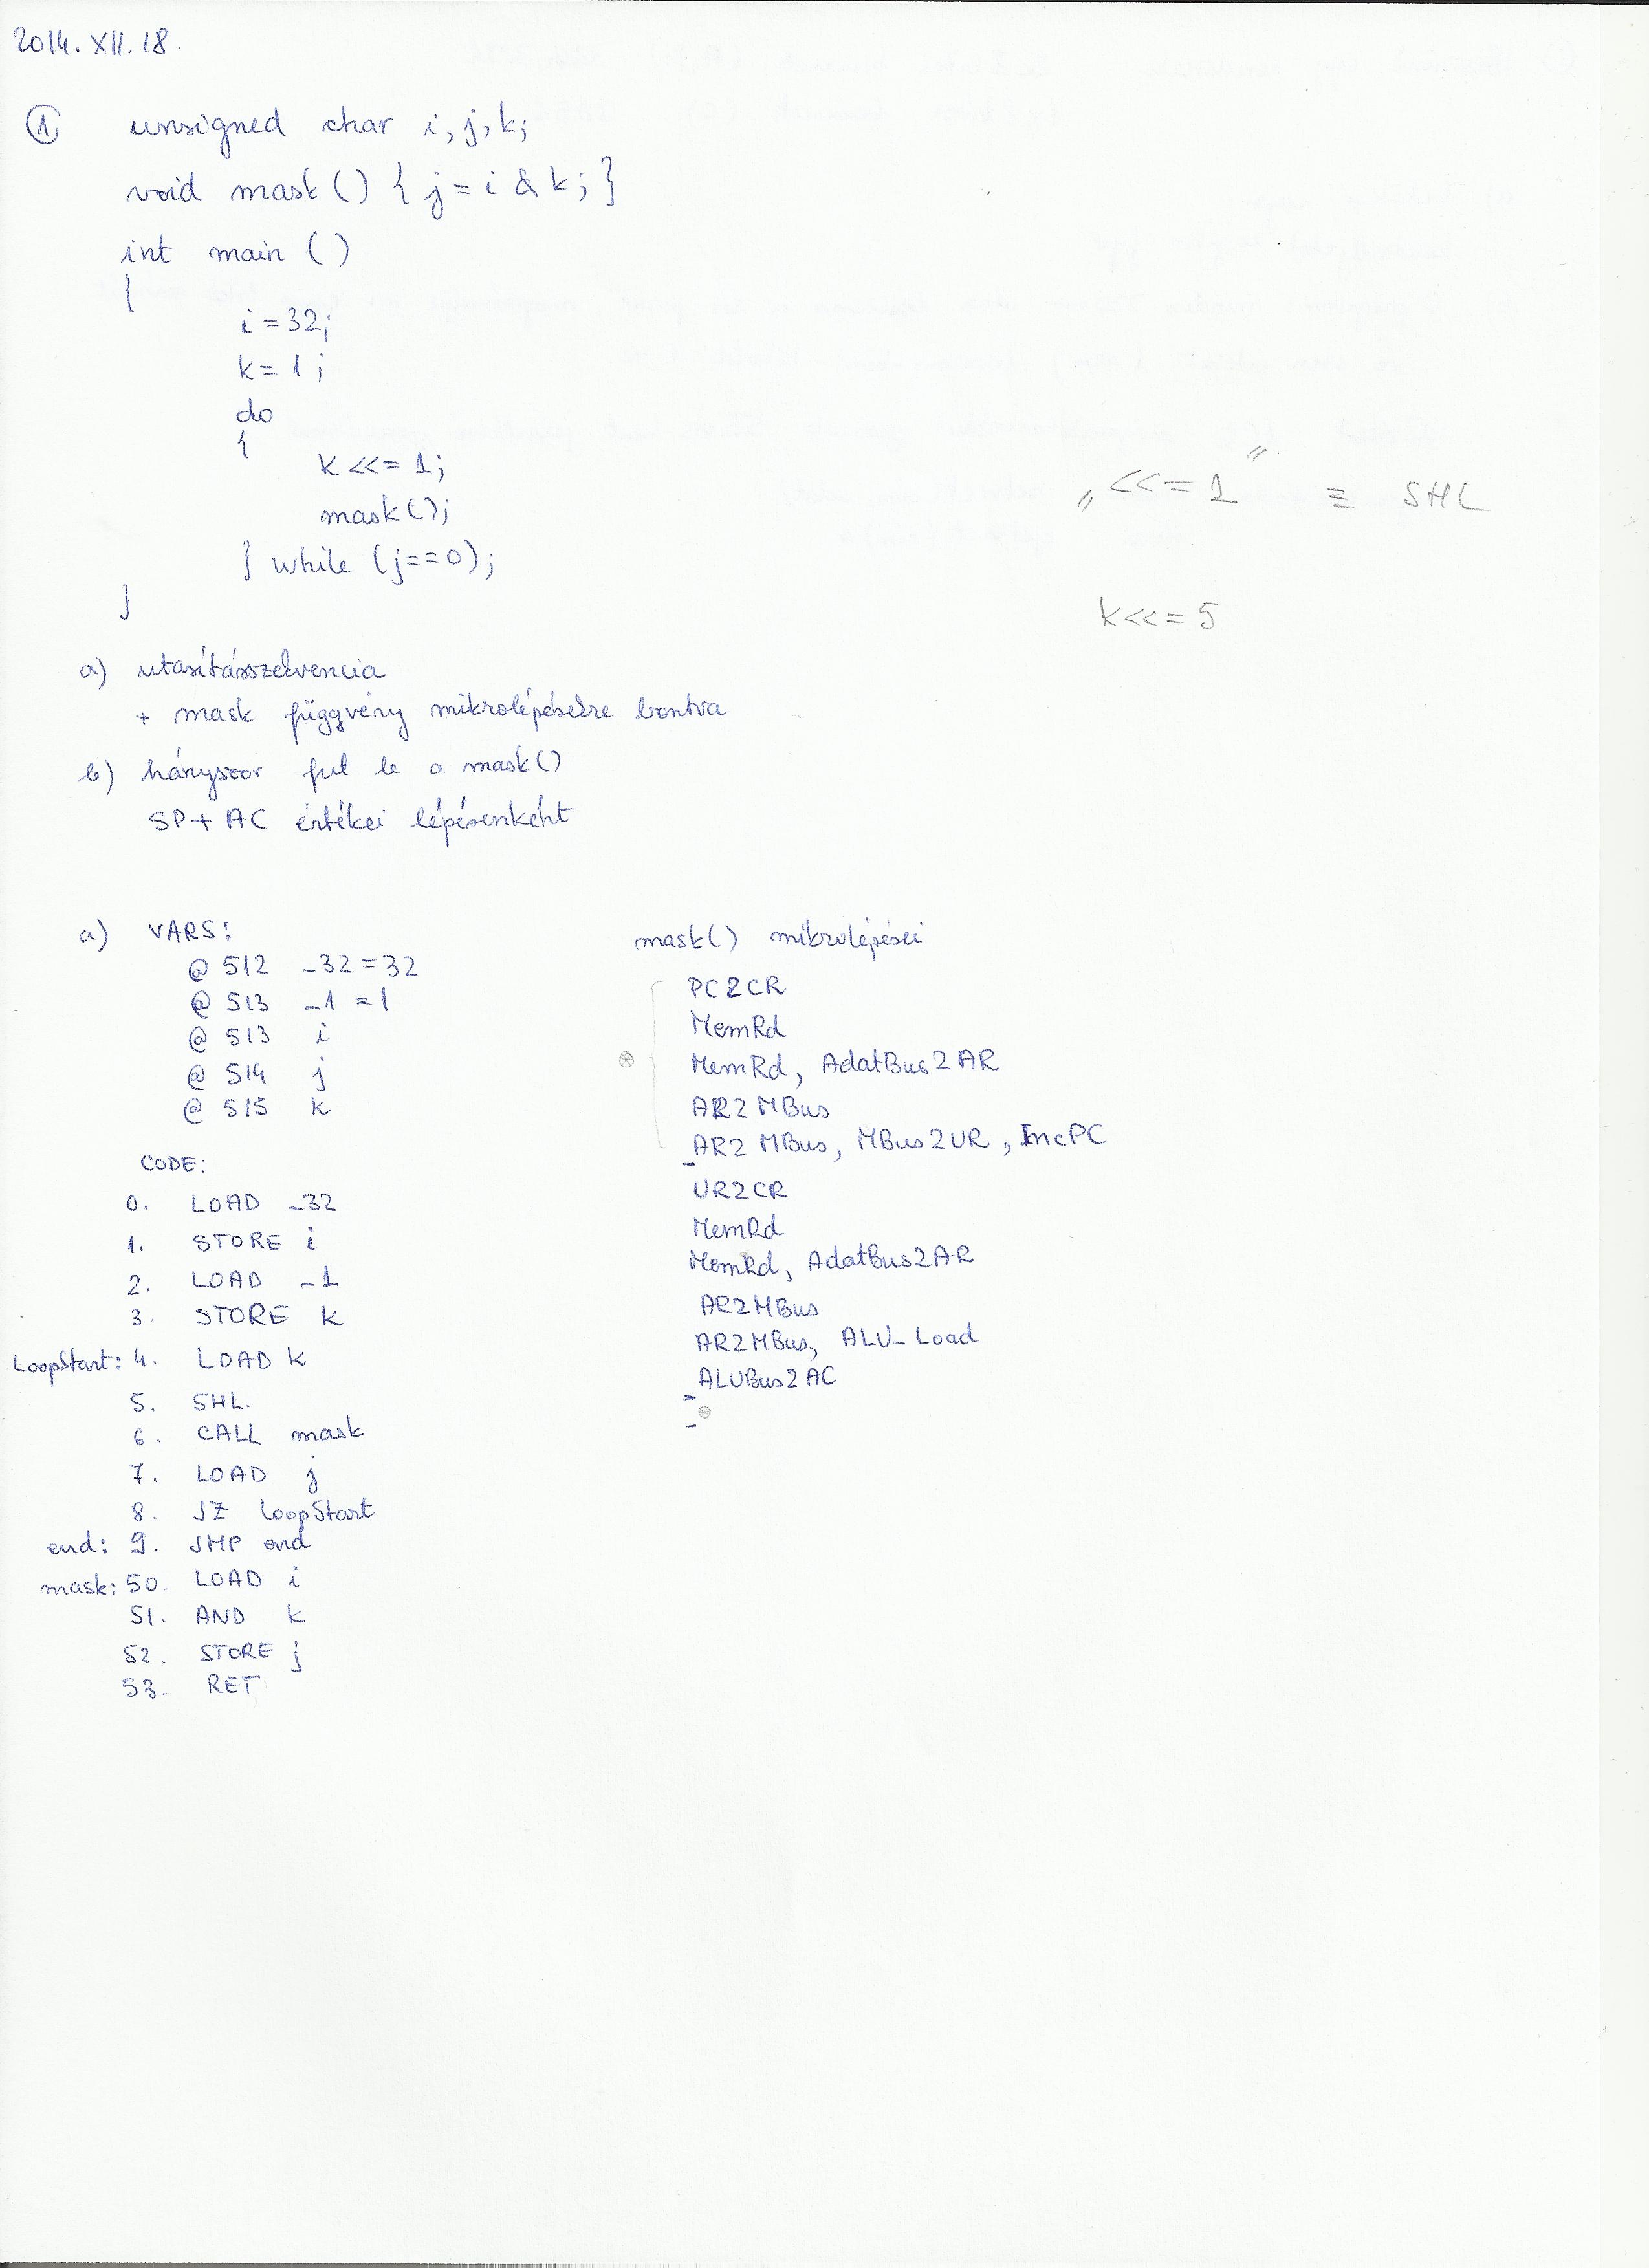 2014. XII. 18.
① unsigned char i, j, k;
void mask () { j = i & k; }
int main ()
{
i = 32;
k = 1;
do
{
k <<= 1;
mask();
} while (j==0);
}
„ <<= 1 ” ≡ SHL
k <<= 5
a) utasításszekvencia
+ mask függvény mikrolépésekre bontva
b) hányszor fut le a mask()
SP + AC értékei lépésenként
a) VARS:
@ 512 _32 = 32
@ 513 _1 = 1
@ 513 i
@ 514 j
@ 515 k
CODE:
0. LOAD _32
1. STORE i
2. LOAD _1
3. STORE k
LoopStart: 4. LOAD k
5. SHL
6. CALL mask
7. LOAD j
8. JZ LoopStart
end: 9. JMP end
mask: 50. LOAD i
51. AND k
52. STORE j
53. RET
mask() mikrolépései
PC2CR
MemRd
⊛ MemRd, AdatBus2AR
AR2MBus
AR2MBus, MBus2UR, IncPC
UR2CR
MemRd
MemRd, AdatBus2AR
AR2MBus
AR2MBus, ALU_Load
ALUBus2AC
⊛